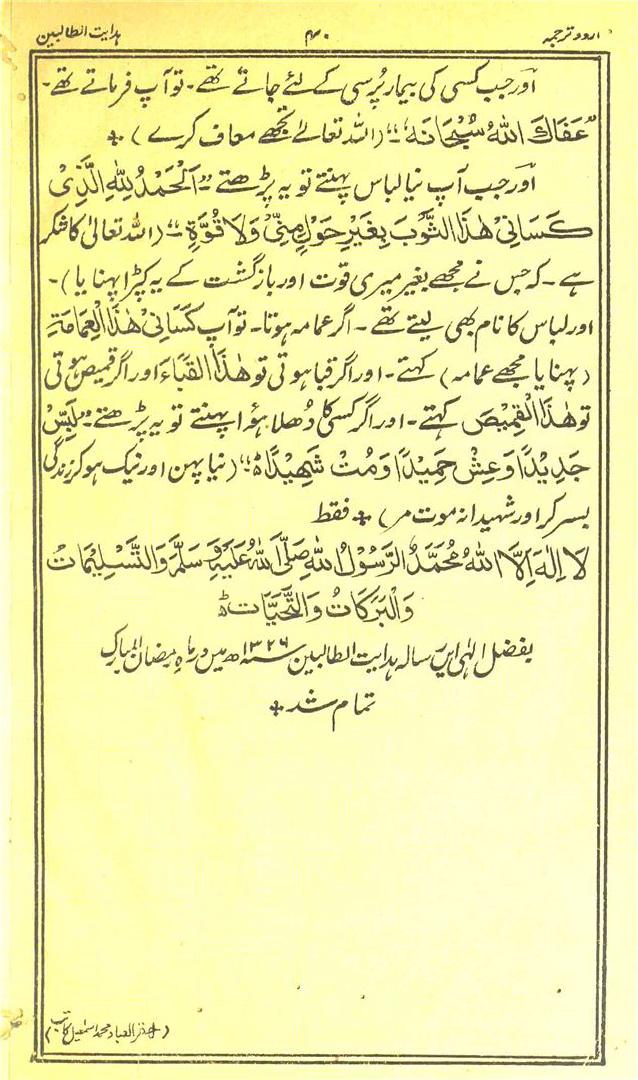 اردو ترجمہ ۴۰ ہدایت الطالبین
اور جب کسی کی بیمار پُرسی کے لئے جاتے تھے۔ تو آپ فرماتے تھے۔
"عَفَاكَ اللّٰهُ سُبْحَانَهٗ"۔ (اللہ تعالےٰ تجھے معاف کرے) ÷
اور جب آپ نیا لباس پہنتے تو یہ پڑھتے "اَلْحَمْدُ لِلّٰهِ الَّذِیْ
كَسَانِیْ هٰذَا الثَّوْبَ بِغَیْرِ حَوْلٍ مِنِّیْ وَلَا قُوَّةٍ"۔ (اللہ تعالیٰ کا شکر
ہے۔ کہ جس نے مجھے بغیر میری قوت اور بازگشت کے یہ کپڑا پہنایا)۔
اور لباس کا نام بھی لیتے تھے۔ اگر عمامہ ہوتا۔ تو آپ كَسَانِیْ هٰذَا الْعِمَامَةَ
(پہنایا مجھے عمامہ) کہتے۔ اور اگر قبا ہوتی تو هٰذَا الْقَبَاءَ اور اگر قمیص ہوتی
تو هٰذَا الْقَمِیْصَ کہتے۔ اور اگر کسی کا دُھلا ہؤا پہنتے تو یہ پڑھتے۔ "لَبِسْ
جَدِیْدًا وَعِشْ حَمِیْدًا وَمُتْ شَهِیْدًا"۔ (نیا پہن اور نیک ہو کر زندگی
بسر کر اور شہیدانہ موت مر) ÷ فقط
لَا اِلٰهَ اِلَّا اللّٰهُ مُحَمَّدُ الرَّسُوْلُ اللّٰهِ صَلَّی اللّٰهُ عَلَیْهِ وَسَلَّمَ وَالتَّسْلِیْمَاتُ
وَالْبَرَكَاتُ وَالتَّحِیَّاتُ
بفضل الٰہی ایں رسالہ ہدایت الطالبین ۱۳۲۶ سنہ ھ میں در ماہ رمضان المبارک
تمام شد ÷
(العباد محمد اسمٰعیل کاتب)